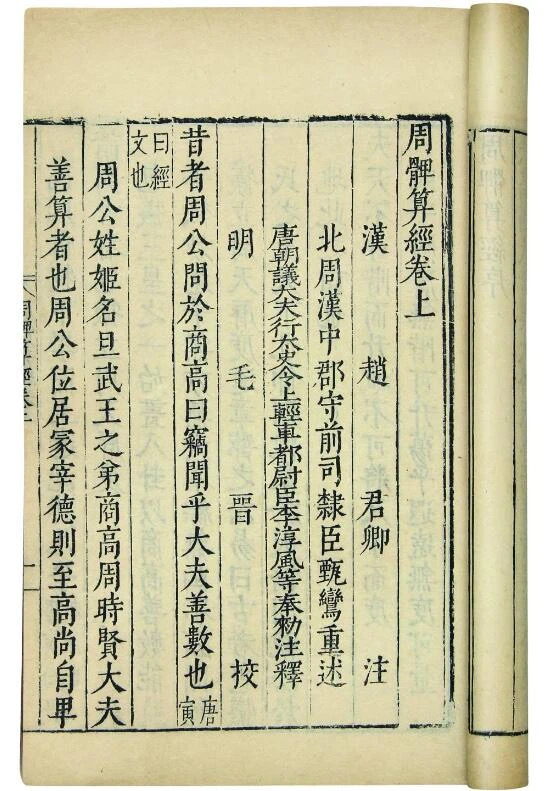 周髀算經卷上
漢　趙　君卿　注
北周漢中郡守前司隸臣甄鸞重述
唐朝議大夫行太史令上輕車都尉臣李淳風等奉勑注釋
明　毛　晉　挍
昔者周公問於商高曰竊聞乎大夫善數也唐寅
曰經文也
周公姓姬名旦武王之弟商高周時賢大夫
善算者也周公位居冢宰德則至高尚自卑
周髀算經卷上
一